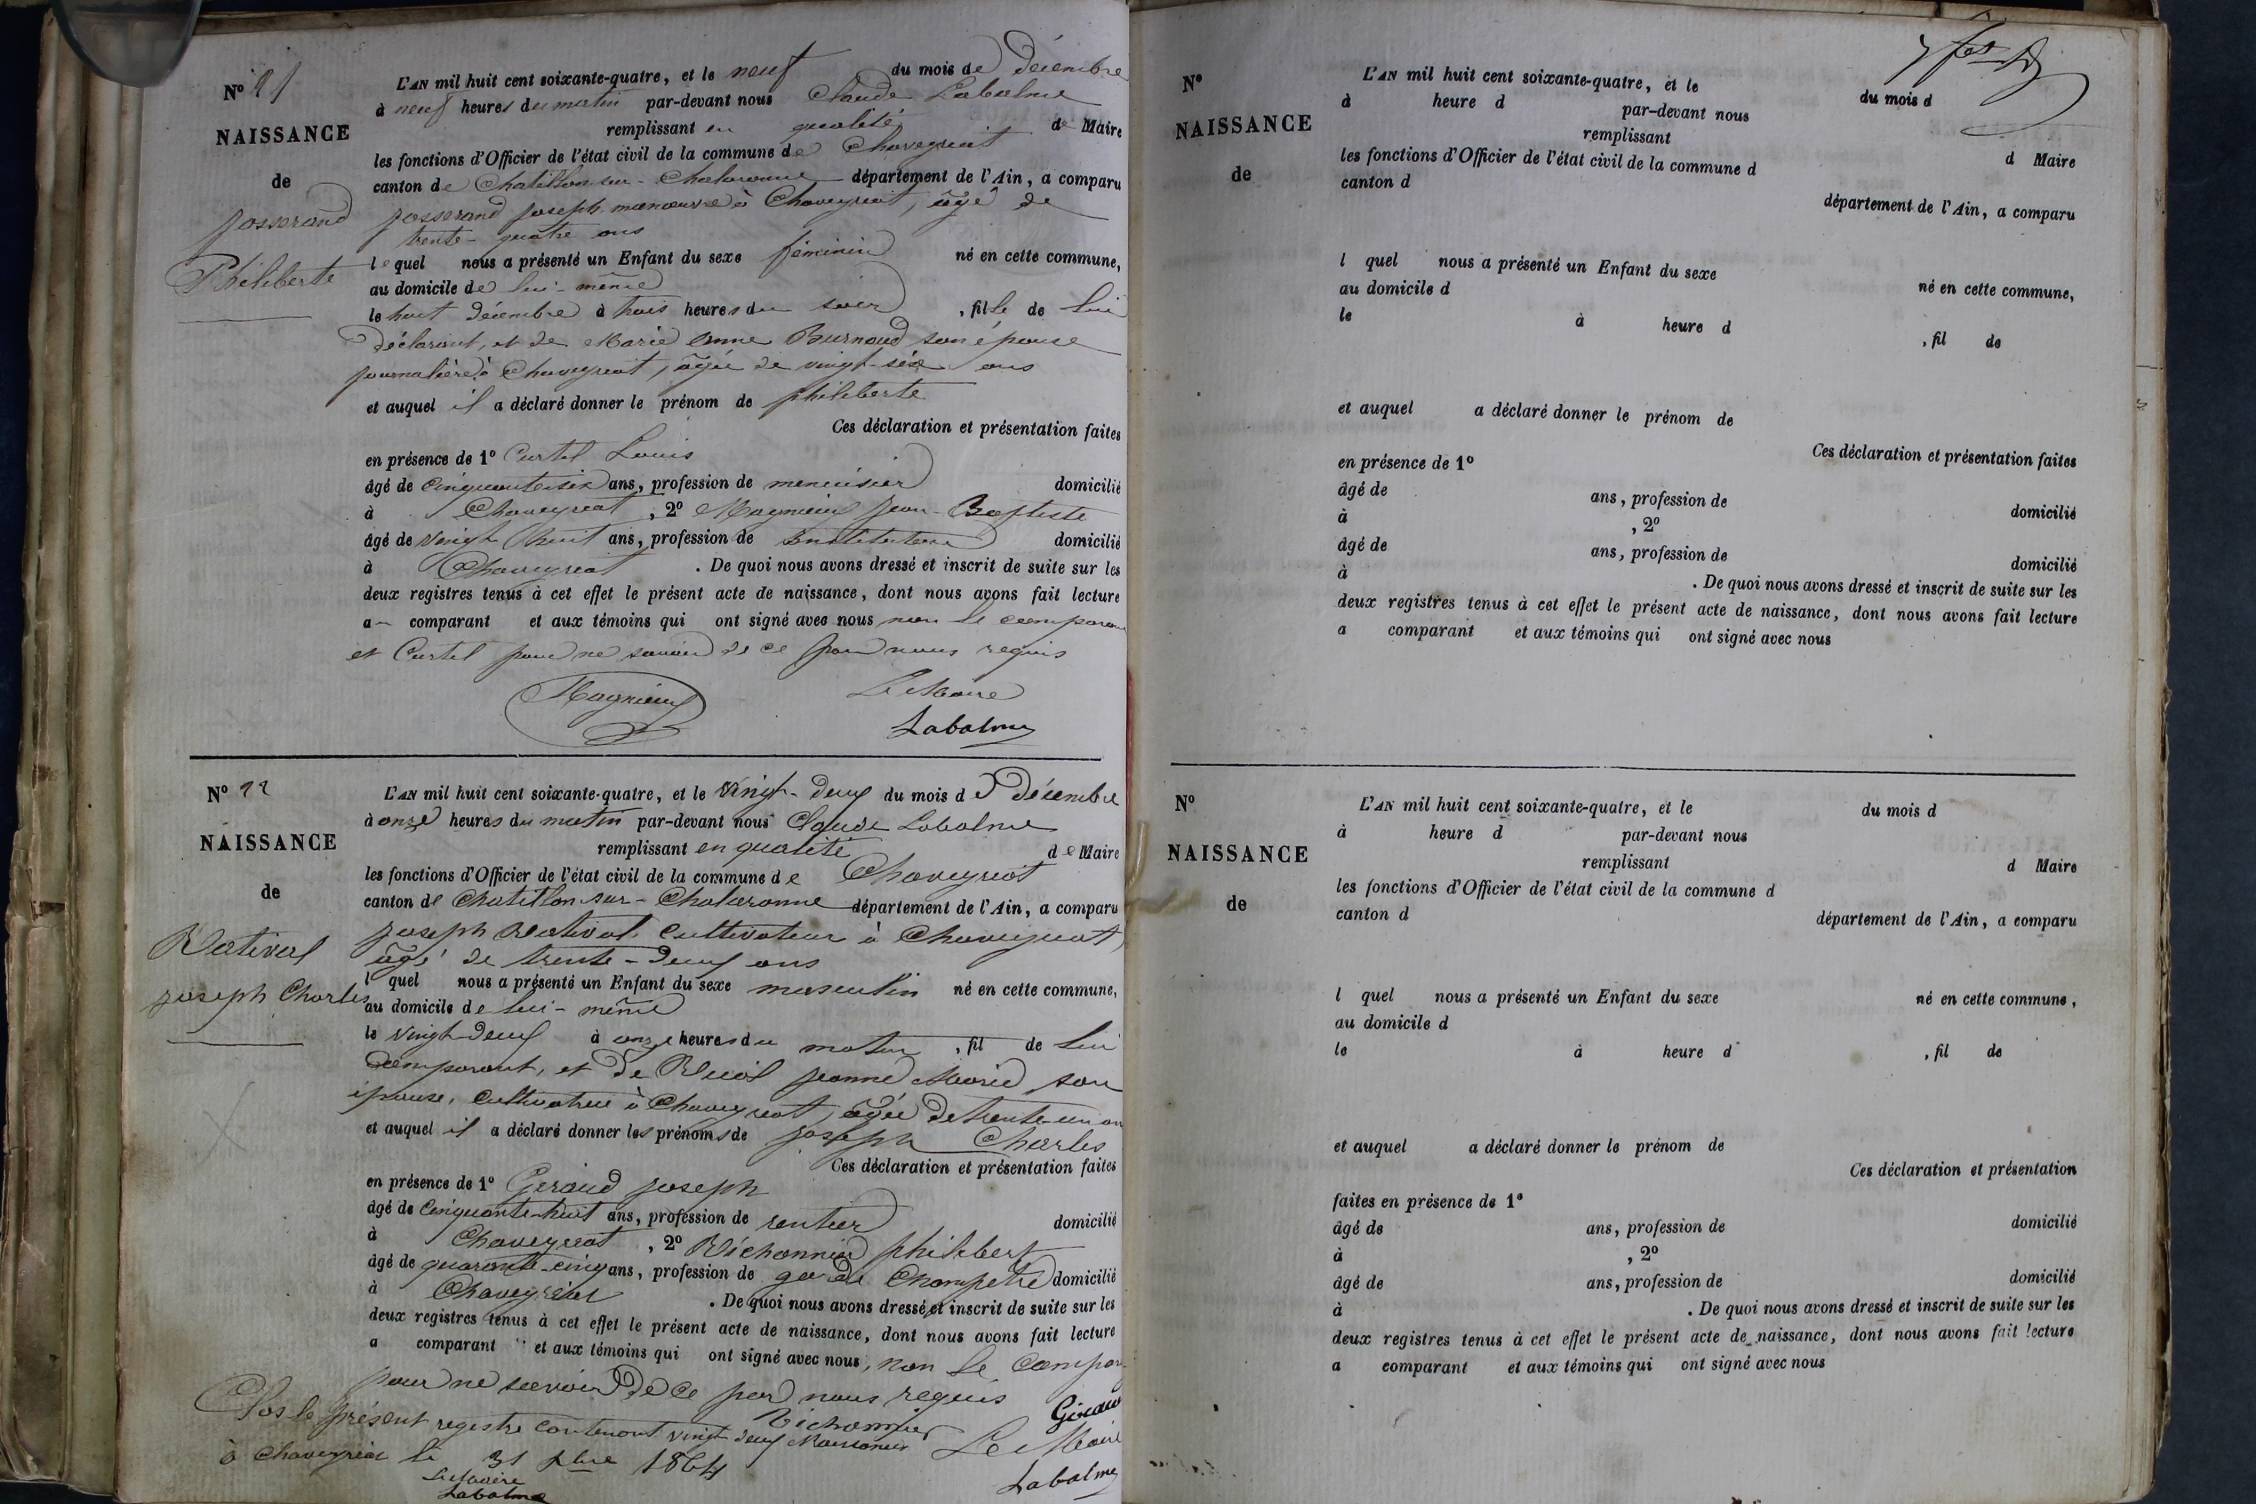 N° 21
NAISSANCE
de
Josserand
Philiberte
L'AN mil huit cent soixante-quatre, et le neuf du mois de Décembre
à neuf heures du matin par-devant nous Claude Labalme
remplissant en qualité de Maire
les fonctions d'Officier de l'état civil de la commune de Chaveyriat
canton de Chatillon-sur-Chalaronne département de l'Ain, a comparu
Josserand Joseph manœuvre à Chaveyriat, âgé de
trente-quatre ans
lequel nous a présenté un Enfant du sexe féminin né en cette commune,
au domicile de lui-même
le huit décembre à trois heures du soir, fille de lui
Déclarant, et de Marie Anne Burnoud son épouse
journalière à Chaveyriat, âgée de vingt-six ans
et auquel il a déclaré donner le prénom de philiberte
Ces déclaration et présentation faites
en présence de 1° Curtel Louis
âgé de cinquante-six ans, profession de menuisier domicilié
à Chaveyriat, 2° Magnieny Jean-Baptiste
âgé de vingt huit ans, profession de Instituteur domicilié
à Chaveyriat. De quoi nous avons dressé et inscrit de suite sur les
deux registres tenus à cet effet le présent acte de naissance, dont nous avons fait lecture
au comparant et aux témoins qui ont signé avec nous non le comparan
et Curtel pour ne savoir de ce par nous requis
Magnieny Le Maire
Labalme
N° 22
NAISSANCE
de
Rativel
Joseph Charles
L'AN mil huit cent soixante-quatre, et le vingt-deux du mois de Décembre
à onze heures du matin par-devant nous Claude Labalme
remplissant en qualité de Maire
les fonctions d'Officier de l'état civil de la commune de Chaveyriat
canton de Chatillon-sur-Chalaronne département de l'Ain, a comparu
Joseph Rativel cultivateur à Chaveyriat
âgé de trente-deux ans
l quel nous a présenté un Enfant du sexe masculin né en cette commune,
au domicile de lui-même
le vingt-deux à onze heures du matin, fil de lui
Comparant, et de Jeanne Marie son
épouse, cultivatrice à Chaveyriat, âgée de trente-un an
et auquel il a déclaré donner les prénoms de Joseph Charles
Ces déclaration et présentation faites
en présence de 1° Giraud Joseph
âgé de cinquante-huit ans, profession de rentier domicilié
à Chaveyriat, 2° Richonnier philibert
âgé de quarante-cinq ans, profession de garde Champetre domicilié
à Chaveyriat. De quoi nous avons dressé et inscrit de suite sur les
deux registres tenus à cet effet le présent acte de naissance, dont nous avons fait lecture
a comparant et aux témoins qui ont signé avec nous, non le compar
pour ne savoir De ce par nous requis
Clos le présent registre contenant vingt deux Naissances
à Chaveyriat le 31 Xbre 1864
Richonnier Giraud
Le Maire
Labalme
Le Maire
Labalme
N°
NAISSANCE
de
L'AN mil huit cent soixante-quatre, et le du mois d
à heure d par-devant nous
remplissant d Maire
les fonctions d'Officier de l'état civil de la commune d
canton d département de l'Ain, a comparu
l quel nous a présenté un Enfant du sexe né en cette commune,
au domicile d
le à heure d , fil de
et auquel a déclaré donner le prénom de
Ces déclaration et présentation faites
en présence de 1°
âgé de ans, profession de domicilié
à , 2°
âgé de ans, profession de domicilié
à . De quoi nous avons dressé et inscrit de suite sur les
deux registres tenus à cet effet le présent acte de naissance, dont nous avons fait lecture
a comparant et aux témoins qui ont signé avec nous
N°
NAISSANCE
de
L'AN mil huit cent soixante-quatre, et le du mois d
à heure d par-devant nous
remplissant d Maire
les fonctions d'Officier de l'état civil de la commune d
canton d département de l'Ain, a comparu
l quel nous a présenté un Enfant du sexe né en cette commune,
au domicile d
le à heure d , fil de
et auquel a déclaré donner le prénom de
Ces déclaration et présentation
faites en présence de 1°
âgé de ans, profession de domicilié
à , 2°
âgé de ans, profession de domicilié
à . De quoi nous avons dressé et inscrit de suite sur les
deux registres tenus à cet effet le présent acte de naissance, dont nous avons fait lecture
a comparant et aux témoins qui ont signé avec nous